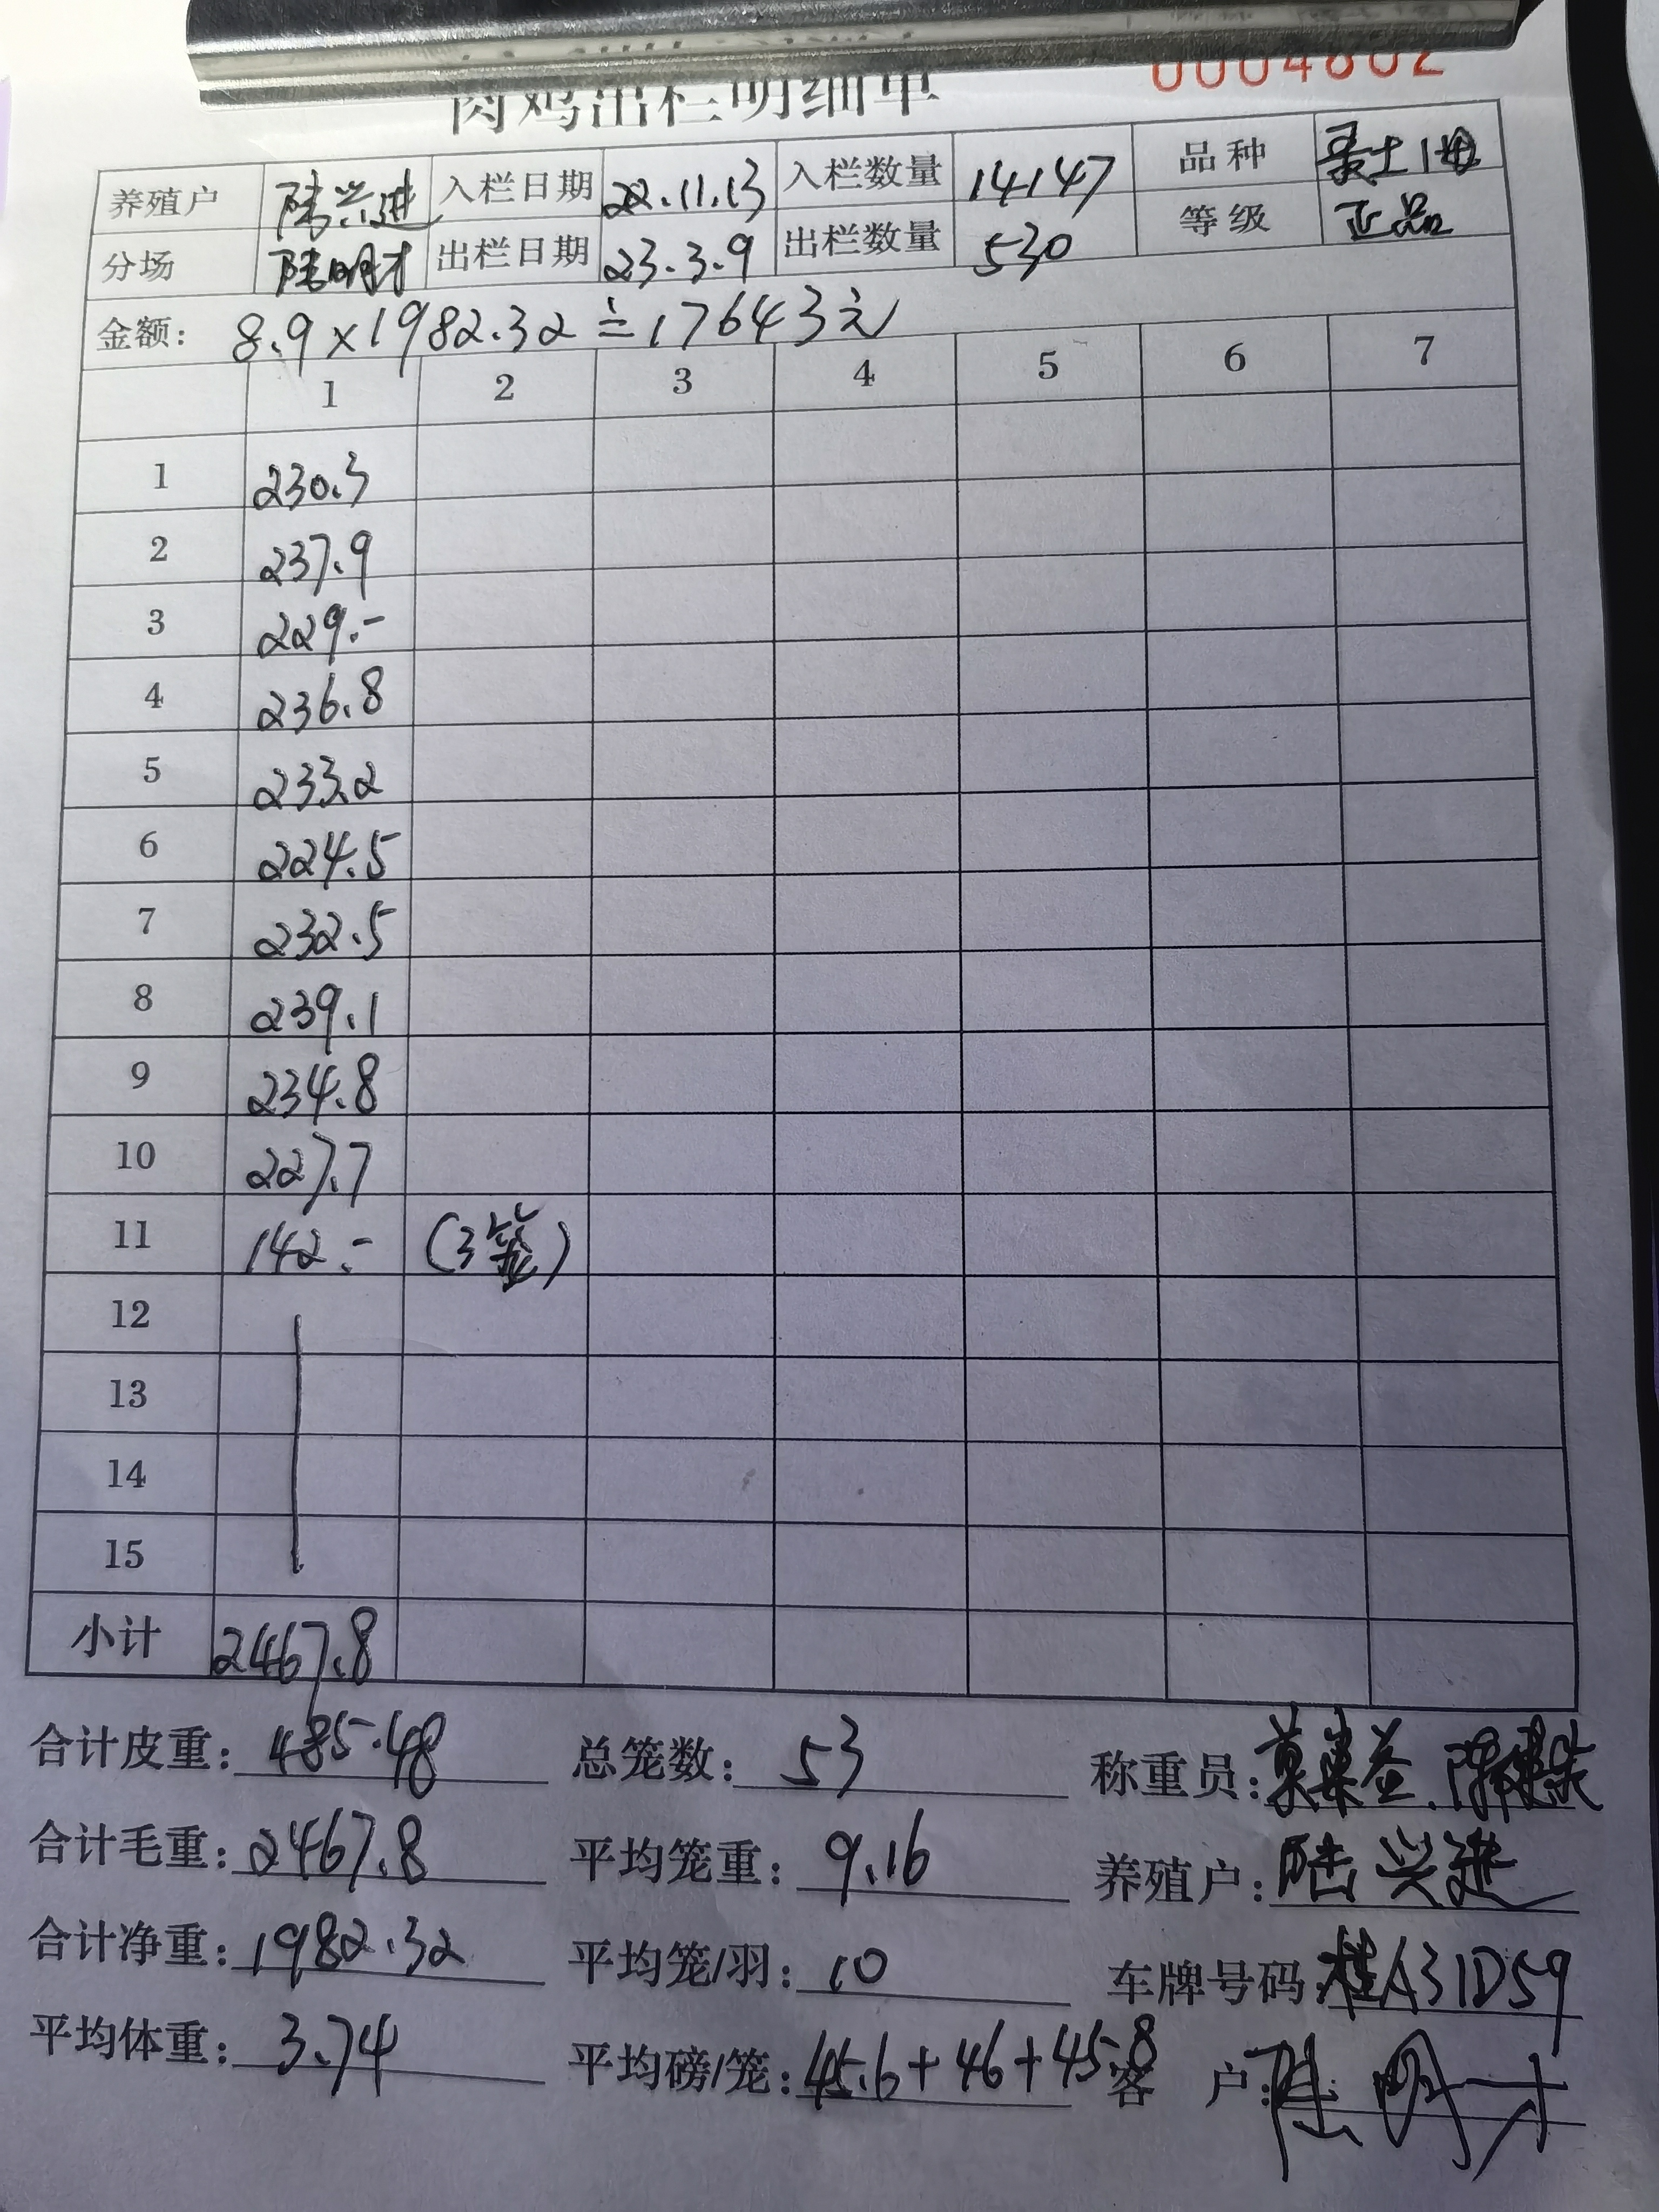 肉鸡出栏明细单 0004802
养殖户 陆兴进 入栏日期 22.11.13 入栏数量 14147 品种 土1母
分场 陆明才 出栏日期 23.3.9 出栏数量 530 等级 正品
金额: 8.9×1982.32≐17643元
1 2 3 4 5 6 7
1 230.3
2 237.9
3 229.-
4 236.8
5 233.2
6 224.5
7 232.5
8 239.1
9 234.8
10 227.7
11 142.- (3笼)
12
13
14
15
小计 2467.8
合计皮重: 485.48 总笼数: 53 称重员:
合计毛重: 2467.8 平均笼重: 9.16 养殖户: 陆兴进
合计净重: 1982.32 平均笼/羽: 10 车牌号码: 桂A31D59
平均体重: 3.74 平均磅/笼: 45.6+46+45.8 客 户: 陆明才